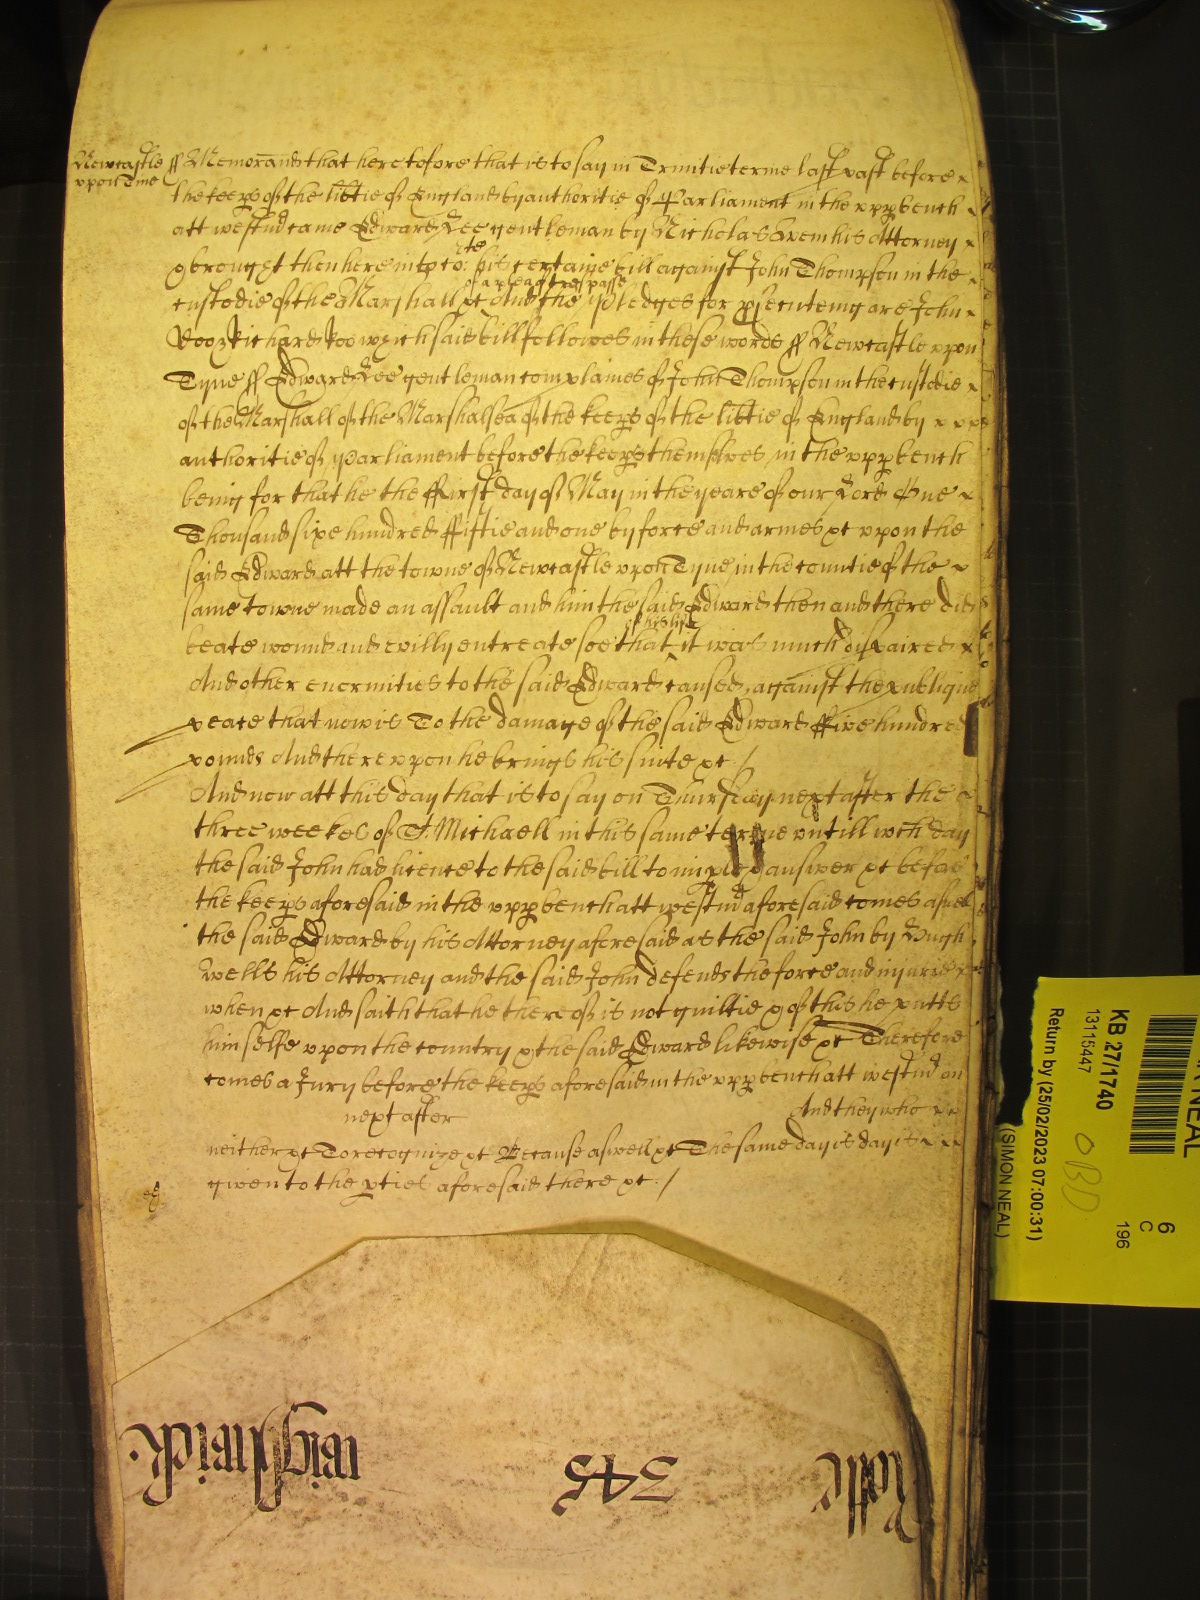 Newcastle
upon Tine
ss Memorand that heretofore that is to say in Trinitie terme last past before
the keeps of the libtie of England by authoritie of Parliament in the upp bench
att westm came Edward Lee gentleman by Nicholas his Attorney
& brought then here into Co: cte his certaine bill against John Thompson in the
of a plea of trespasse
custodie of the Marshall &c And the pledges for psecuteing are John
Doo & Richard Roo which said bill followes in these words ss Newcastle upon
Tyne ss Edward Lee gentleman complaines of John Thompson in the custodie
of the Marshall of the Marshalsea of the keeps of the libtie of England by
authoritie of Parliament before the keeps themselves in the upp bench
being for that he the ffirst day of May in the yeare of our Lord One
Thousand sixe hundred ffiftie and one by force and armes &c upon the
said Edward att the towne of Newcastle upon Tyne in the countie of the
same towne made an assault and him the said Edward then and there did
of his life
beate wound and evilly entreate soe that it was much dispaired
And other enormities to the said Edward caused against the publique
peace that now is To the damage of the said Edward ffive hundred
pounds And thereupon he brings his suite &c /
And now att this day that is to say on Thursday next after the
three weekes of St Michaell in this same terme untill wch day
the said John had licence to the said bill to imple & answer &c before
the keeps aforesaid in the upp bench att westm aforesaid comes aswell
the said Edward by his Attorney aforesaid as the said John by Hugh
Wells his Attorney and the said John defends the force and injurie
when &c And saith that he thereof is not guiltie & of this he putts
himselfe upon the country & the said Edward likewise &c Therefore
comes a Jury before the keeps aforesaid in the upp bench att westm on
next after And they who
neither &c To recognize &c Because aswell &c The same day is day is
given to the pties aforesaid there &c /
Rolle 345 wightwick.
KB 27/1740
13115447
Return by (25/02/2023 07:00:31)
(SIMON NEAL)
OBD
6
C
196
NEAL